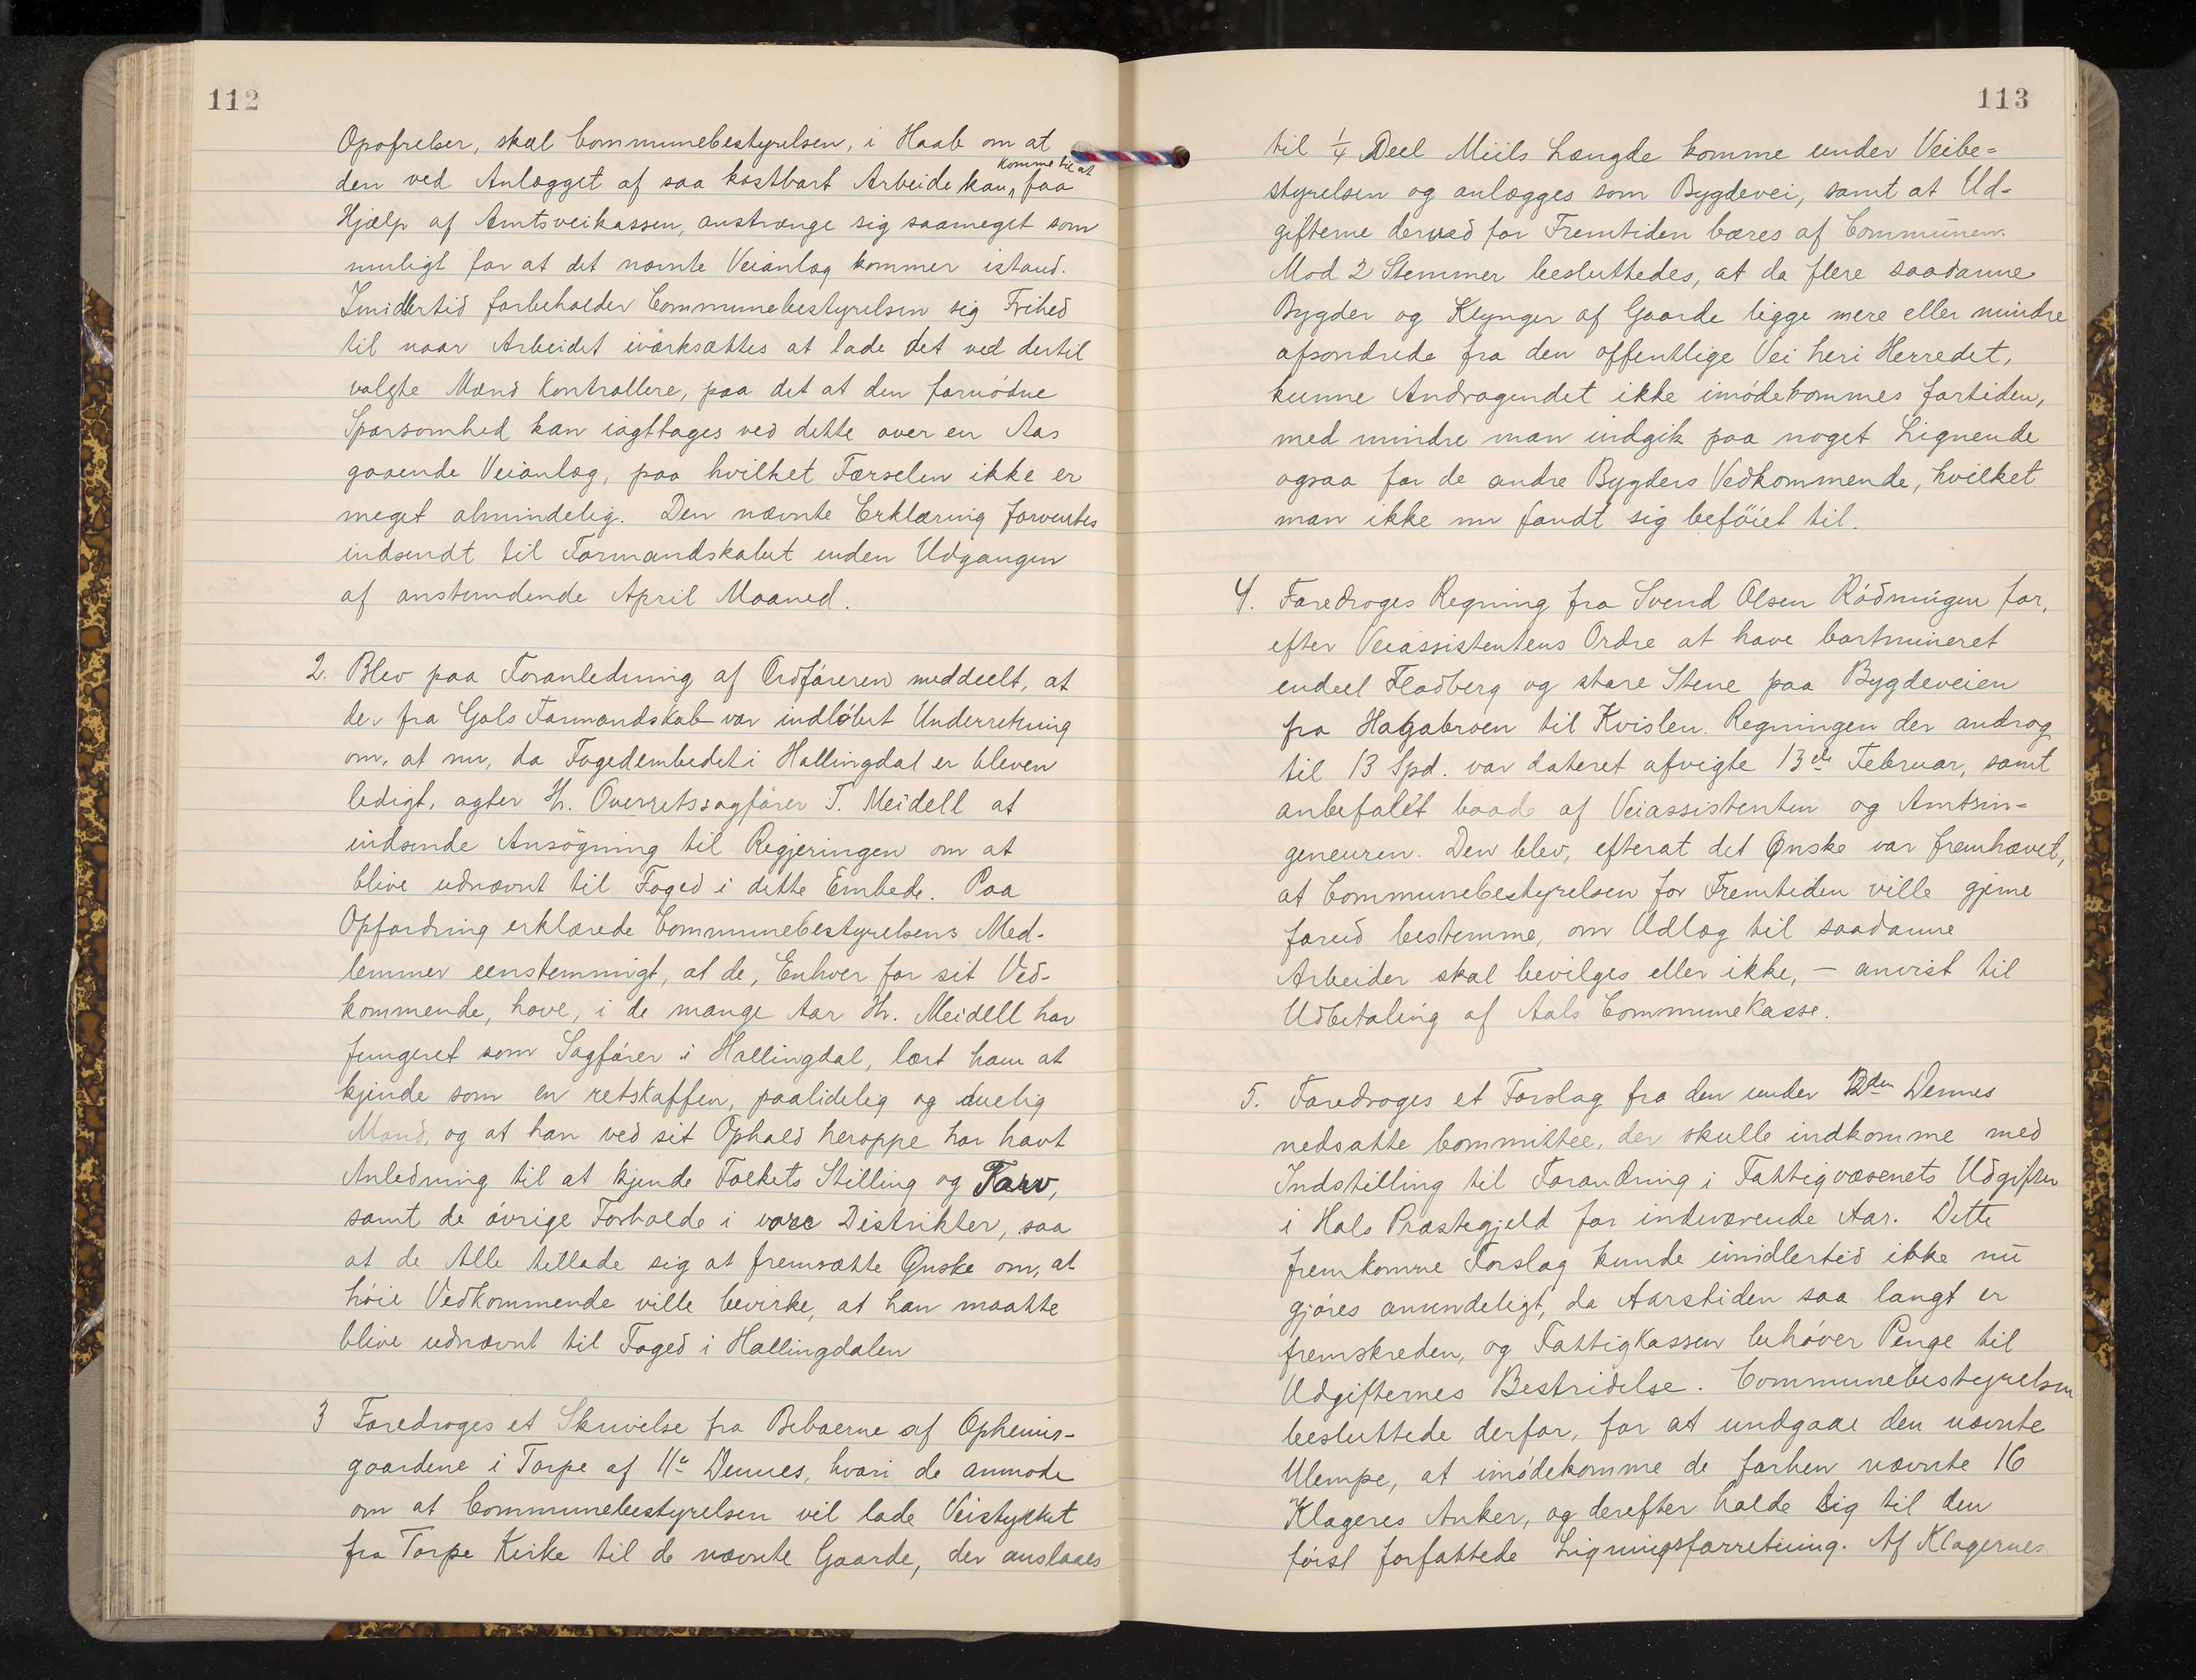 112
Opofrelser, skal Communebestyrelsen, i Haab om at
komme til at
den ved Anlægget af saa kostbart Arbeide kan, faa
Hjælp af Amtsveikassen, anstrænge sig saameget som
muligt for at det nævnte Veianlæg kommer istand.
Imidlertid forbeholder Communebestyrelsen sig Frihed
til naar Arbeidet iværksættes at lade det ved dertil
valgte Mænd Kontrollere, paa det at den fornödne
Sparsomhed kan iagttages ved dette over en Aas
gaaende Veianlæg, paa hvilket Færselen ikke er
meget almindelig. Den nævnte Erklæring forventes
indsendt til Formandskabet inden Udgangen
af anstundende April Maaned.
2. Blev paa Foranledning af Ordføreren meddeelt, at
der fra Gols Formandskab var indløbet Underretning
om, at nu, da Fogedembedet i Hallingdal er bleven
ledigt, agter Hr. Overretssagfører T. Meidell at
indsende Ansögning til Regjeringen om at
blive udnævnt til Foged i dette Embede. Paa
Opfordring erklærede Communebestyrelsens Med-
lemmer eenstemmigt, at de, Enhver for sit Ved-
kommende, have, i de mange Aar Hr. Meidell har
fungeret som Sagfører i Hallingdal, lært ham at
kjende som en retskaffen, paalidelig og duelig
Mand, og at han ved sit Ophold heroppe har havt
Anledning til at kjende Folkets Stilling og Tarv,
samt de øvrige Forholde i vore Distrikter, saa
at de Alle tillade sig at fremsætte Ønske om, at
høie Vedkommende ville bevirke, at han maatte
blive udnævnt til Foged i Hallingdalen
3 Foredroges et Skrivelse fra Beboerne af Opheims-
gaardene i Torpe af 11te Dennes, hvori de anmode
om at Communebestyrelsen vil lade Veistykket
fra Torpe Kirke til de nævnte Gaarde, der anslaaes
113
til 1/4 Deel Miils Længde komme under Veibe=
styrelsen og anlægges som Bygdevei, samt at Ud-
gifterne derved for Fremtiden bæres af Communen.
Mod 2 Stemmer besluttedes, at da flere saadanne
Bygder og Klynger af Gaarde ligge mere eller mindre
afsondrede fra den offentlige Vei heri Herredet,
kunne Andragendet ikke imødekommes fortiden,
med mindre man indgik paa noget Lignende
ogsaa for de andre Bygders Vedkommende, hvilket
man ikke nu fandt sig beföiet til.
4. Foredroges Regning fra Svend Olsen Rødningen for,
efter Veiassistentens Ordre at have bortmineret
endeel Fladberg og store Stene paa Bygdeveien
fra Hagabroen til Kvislen. Regningen der androg
til 13 Spd. var dateret afvigte 13de Februar, samt
anbefalet baade af Veiassistenten og Amtsin=
geneuren. Den blev, efterat det Ønske var fremhævet,
at Communebestyrelsen for Fremtiden ville gjerne
forud bestemme, om Udlæg til saadanne
Arbeider skal bevilges eller ikke, – anvist til
Udbetaling af Aals CommuneKasse.
5. Foredroges et Forslag fra den under 12den Dennes
nedsatte Committee, der skulle indkomme med
Indstilling til Forandring i Fattigvæsenets Udgifter
i Hols Præstegjeld for indeværende Aar. Dette
fremkomne Forslag kunde imidlertid ikke nu
gjøres anvendeligt, da Aarstiden saa langt er
fremskreden, og FattigKassen behøver Penge til
Udgifternes Bestridelse. Communebestyrelsen
besluttede derfor, for at undgaae den nævnte
Ulempe, at imødekomme de forhen nævnte 16
Klageres Anker, og derefter holde sig til den
først forfattede Ligningsforretning. Af Klagernes